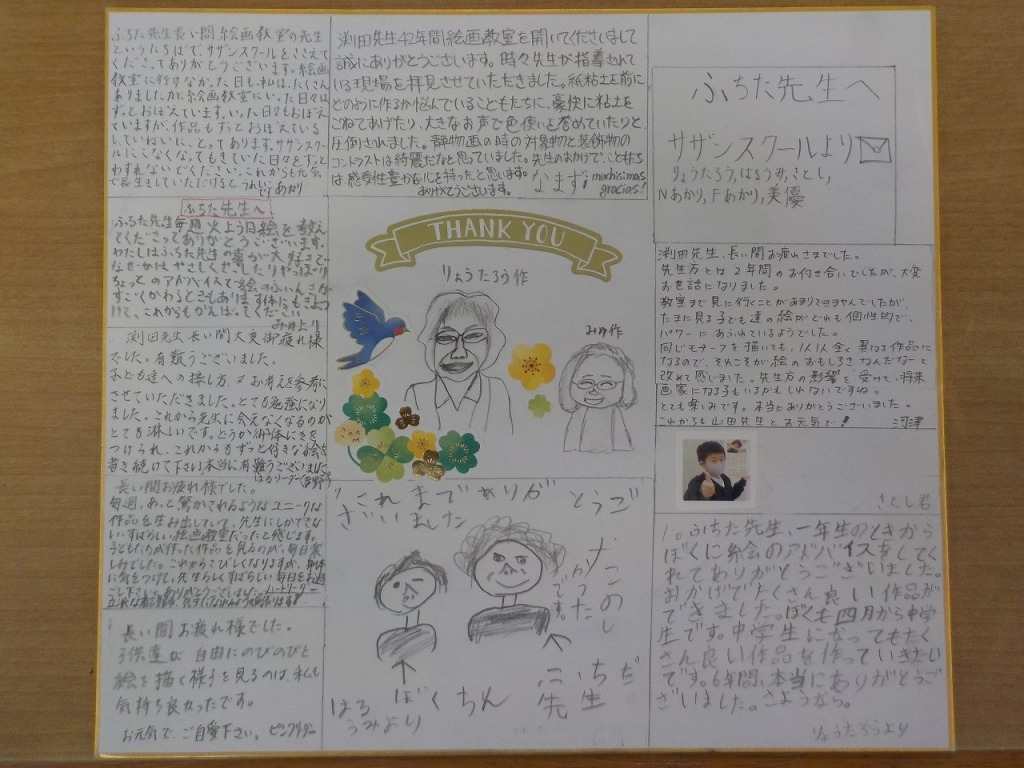 ふちた先生長い間、絵画教室の先生
というたちばで、サザンスクールをささえて
くださってありがとうございます。絵画
教室に行けなかった日も、私は、たくさん
ありましたが、絵画教室にいった日々は
ずっとおぼえています。いった日々もおぼえ
ていますが、作品もずっとおぼえている
し、ていねいに、とってあります。サザンスクー
ルにこなくなってもきていた日々をずっと
わすれないでください。これからも元気
で長生きしていただけるとうれしい
です あかり
渕田先生42年間絵画教室を開いてくださいまして
誠にありがとうございます。時々先生が指導されて
いる現場を拝見させていただきました。紙粘土を前に
どのように作るか悩んでいるこどもたちに、豪快に粘土を
こねてあげたり、大きなお声で色使いを誉めていたりと
圧倒されました。静物画の時の対象物と装飾物の
コントラストは綺麗だなと思っていました。先生のおかげで、こどもたち
は感受性豊かな心を持ったと思います。
ありがとうございます。 なます! muchisimas
gracias!
ふちた先生へ
サザンスクールより
りょうたろう、はるうみ、さとし、
Nあかり、Fあかり、美優
ふちた先生へ
ふちた先生毎週火よう日絵を教え
てくださってありがとうございます。
わたしはふちた先生の事が大好きで
ちょっとのアドバイスで絵のふんいきが
すごくかわるときもあります体にもきをつ
けて、これからもがんばってください
みゆより
THANK YOU
りょうたろう作
みゆ作
渕田先生、長い間お疲れさまでした。
先生方とは2年間のお付き合いでしたが、大変
お世話になりました。
教室まで見に行くことがあまりできませんでしたが、
たまに見る子ども達の絵がどれも個性的で、
パワーにあふれているようでした。
同じモチーフを描いても、1人1人全く異なる作品に
なるので、それこそが絵のおもしろさなんだなーと
改めて感じました。先生方の影響を受けて、将来
画家になる子もいるかもしれないですね。
とても楽しみです。本当にありがとうございました。
これからも山田先生とお元気で! 河津
渕田先生長い間大変御疲れ様
でした。有難うございました。
子ども達への接し方、お考えを参考に
させていただきました。とても勉強になり
ました。これから先生に会えなくなるのが
とても淋しいです。どうか御体にきを
つけられ、これからもずっと好きな絵を
書き続けて下さい。本当に有難うございました
はるリーダー
長い間お疲れ様でした。
毎週、あっと驚かされるようなユニークな
作品を生み出していて、先生にしかできな
いすばらしい絵画教室だったと感じます。
子どもたちが作った作品を見るのが、毎日楽
しみでした。これからさびしくなりますが、身体
に気をつけて、先生らしくすばらしい毎日をお過
ごし下さい。ありがとうございました。
さとし君
これまでありがとうご
ざいました
ナンコのし
かつった
です。
ぼくちん
こいちだ
先生
はる
うみより
ふちた先生、一年生のときから
ぼくに絵のアドバイスをしてく
れてありがとうございました。
おかげでたくさん良い作品が
できました。ぼくも四月から中学
生です。中学生になってもたく
さん良い作品を作っていきたい
です。6年間、本当にありがとうご
ざいました。さようなら。
りょうたろうより
長い間お疲れ様でした。
子供達が自由にのびのびと
絵を描く様子を見るのは、私も
気持ち良かったです。
お元気で、ご自愛下さい。